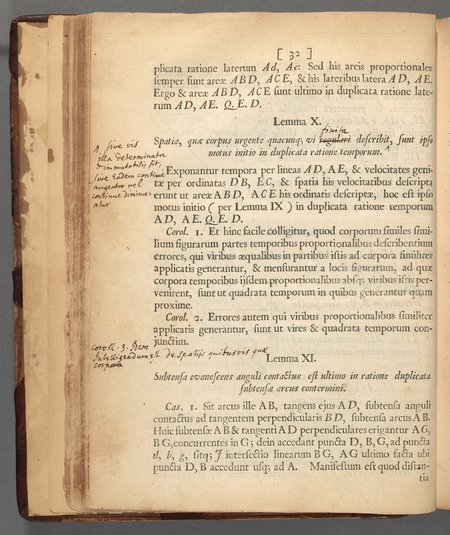 [ 32 ]
plicata ratione laterum Ad, Ae: Sed his areis proportionales
semper sunt areæ ABD, ACE, & his lateribus latera AD, AE.
Ergo & areæ ABD, ACE sunt ultimo in duplicata ratione late-
rum AD, AE. Q. E. D.
Lemma X.
finita
Spatia, quæ corpus urgente quacunq; vi regulari describit, sunt ipso
motus initio in duplicata ratione temporum.
A sive vis
illa Determinata
& immutabilis sit,
sive Eadem continuo
augeatur vel
continuo diminu-
atur
Exponantur tempora per lineas AD, AE, & velocitates geni-
tæ per ordinatas DB, EC, & spatia his velocitatibus descripta
erunt ut areæ ABD, ACE his ordinatis descriptæ, hoc est ipso
motus initio (per Lemma IX) in duplicata ratione temporum
AD, AE. Q. E. D.
Corol. 1. Et hinc facile colligitur, quod corporum similes simi-
lium figurarum partes temporibus proportionalibus describentium
errores, qui viribus æqualibus in partibus istis ad corpora similiter
applicatis generantur, & mensurantur a locis figurarum, ad quæ
corpora temporibus ijsdem proportionalibus absq; viribus istis per-
venirent, sunt ut quadrata temporum in quibus generantur quam
proxime.
Corol. 2. Errores autem qui viribus proportionalibus similiter
applicatis generantur, sunt ut vires & quadrata temporum con-
junctim.
Coroll. 3. Idem
Intelligendum est de spatijs quibusvis quæ
corpora
Lemma XI.
Subtensa evanescens anguli contactus est ultimo in ratione duplicata
subtensæ arcus contermini.
Cas. 1. Sit arcus ille AB, tangens ejus AD, subtensa anguli
contactus ad tangentem perpendicularis BD, subtensa arcus AB.
Huic subtensæ AB & tangenti AD perpendiculares erigantur AG,
BG, concurrentes in G; dein accedant puncta D, B, G, ad puncta
d, b, g, sitq; J intersectio linearum BG, AG ultimo facta ubi
puncta D, B accedunt usq; ad A. Manifestum est quod distan-
tia